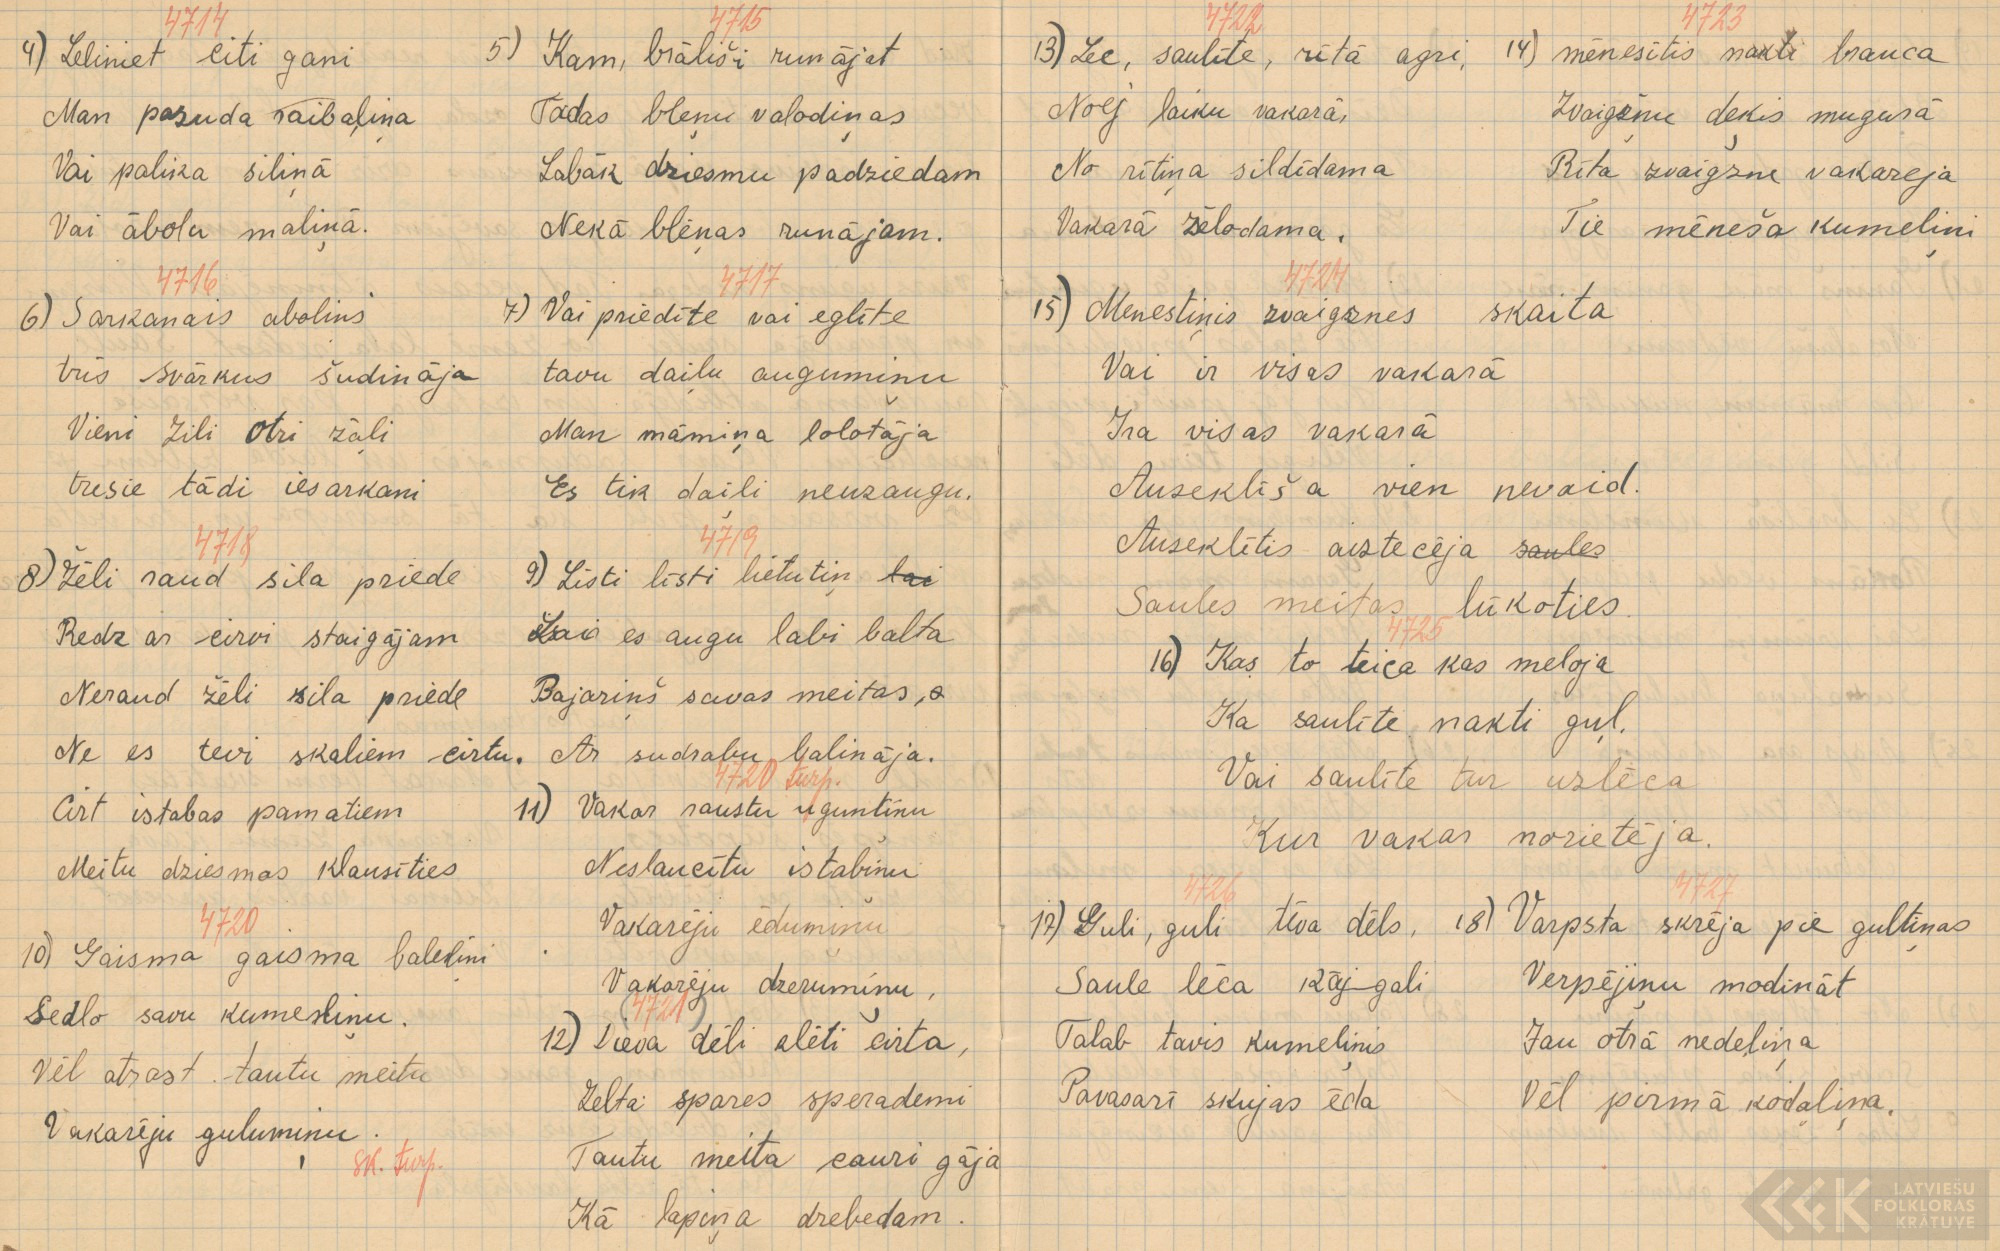 4714
4) Leliniet citi gani
Man pazuda raibaļiņa
Vai palika siliņā
Vai ābolu maliņā.
4715
5) Kam, brālīši runājat
Tādas bleņu valodiņas
Labāk dziesmu padziedam
Nekā blēņas runājam.
4716
6) Sarkanais aboliņš
trīs svārkus šūdināja
Vieni zili otri zāļi
tresie tādi iesarkani
4717
7) Vai priedīte vai eglīte
tavu daiļu augumiņu
Man māmiņa lolotāja
Es tik daiļi neuzaugu.
4718
8) Žēli raud sila priede
Redz ar cirvi staigājam
Neraud žēli sila priede
Ne es tevi skaliem cirtu.
Cirt istabas pamatiem
Meitu dziesmas klausīties
4719
9) Līsti līsti lietutiņ lai
Lai es augu labi balta
Bajariņš savas meitas,
Ar sudrabu balināja.
4720
10) Gaisma gaisma baleliņi
Sedlo savu kumeliņu.
Vēl atrast tautu meitu
Vakarēju guļumiņu.
sk. turp.
4720 turp.
11) Vakar raustu uguntiņu
Neslaucītu istabiņu
Vakarēju ēdumiņu
Vakarēju dzerumiņu,
(4721)
12) Dieva dēli klēti cirta,
Zelta spāres sperademi
Tautu meita cauri gāja
Kā lapiņa drebedam.
4722
13) Lec, saulīte, rītā agri,
Noej laiku vakarā,
No rītiņa sildīdama
Vakarā žēlodama.
4723
14) mēnesītis nakti brauca
Zvaigžņu deķis mugurā
Rīta zvaigzne vakareja
Tie mēneša kumeliņi
4724
15) Menestiņis zvaigznes skaita
Vai ir visas vakarā
Ira visas vakarā
Auseklīša vien nevaid.
Auseklītis aiztecēja saules
Saules meitas lūkoties.
4725
16) Kas to teica kas meloja
Ka saulīte nakti guļ.
Vai saulīte tur uzlēca
Kur vakar norietēja.
4726
17) Guli, guli tēva dēls,
Saule lēca kāj-gali
Talab tavis kumeliņis
Pavasarī skujas ēda
4727
18) Varpsta skrēja pie gultiņas
Verpējiņu modināt
Jau otrā nedeļiņa
Vēl pirmā kodaļiņa.
LATVIEŠU
FOLKLORAS
KRĀTUVE